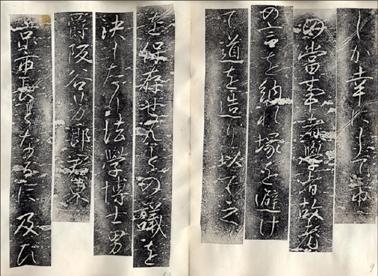 しか幸にして
の當事者學者故老
の言を納れ塚を避け
て道を造り以て之
を保存せんことの議を
決したり法學博士男
爵阪谷芳郎君東
京市長となるに及び